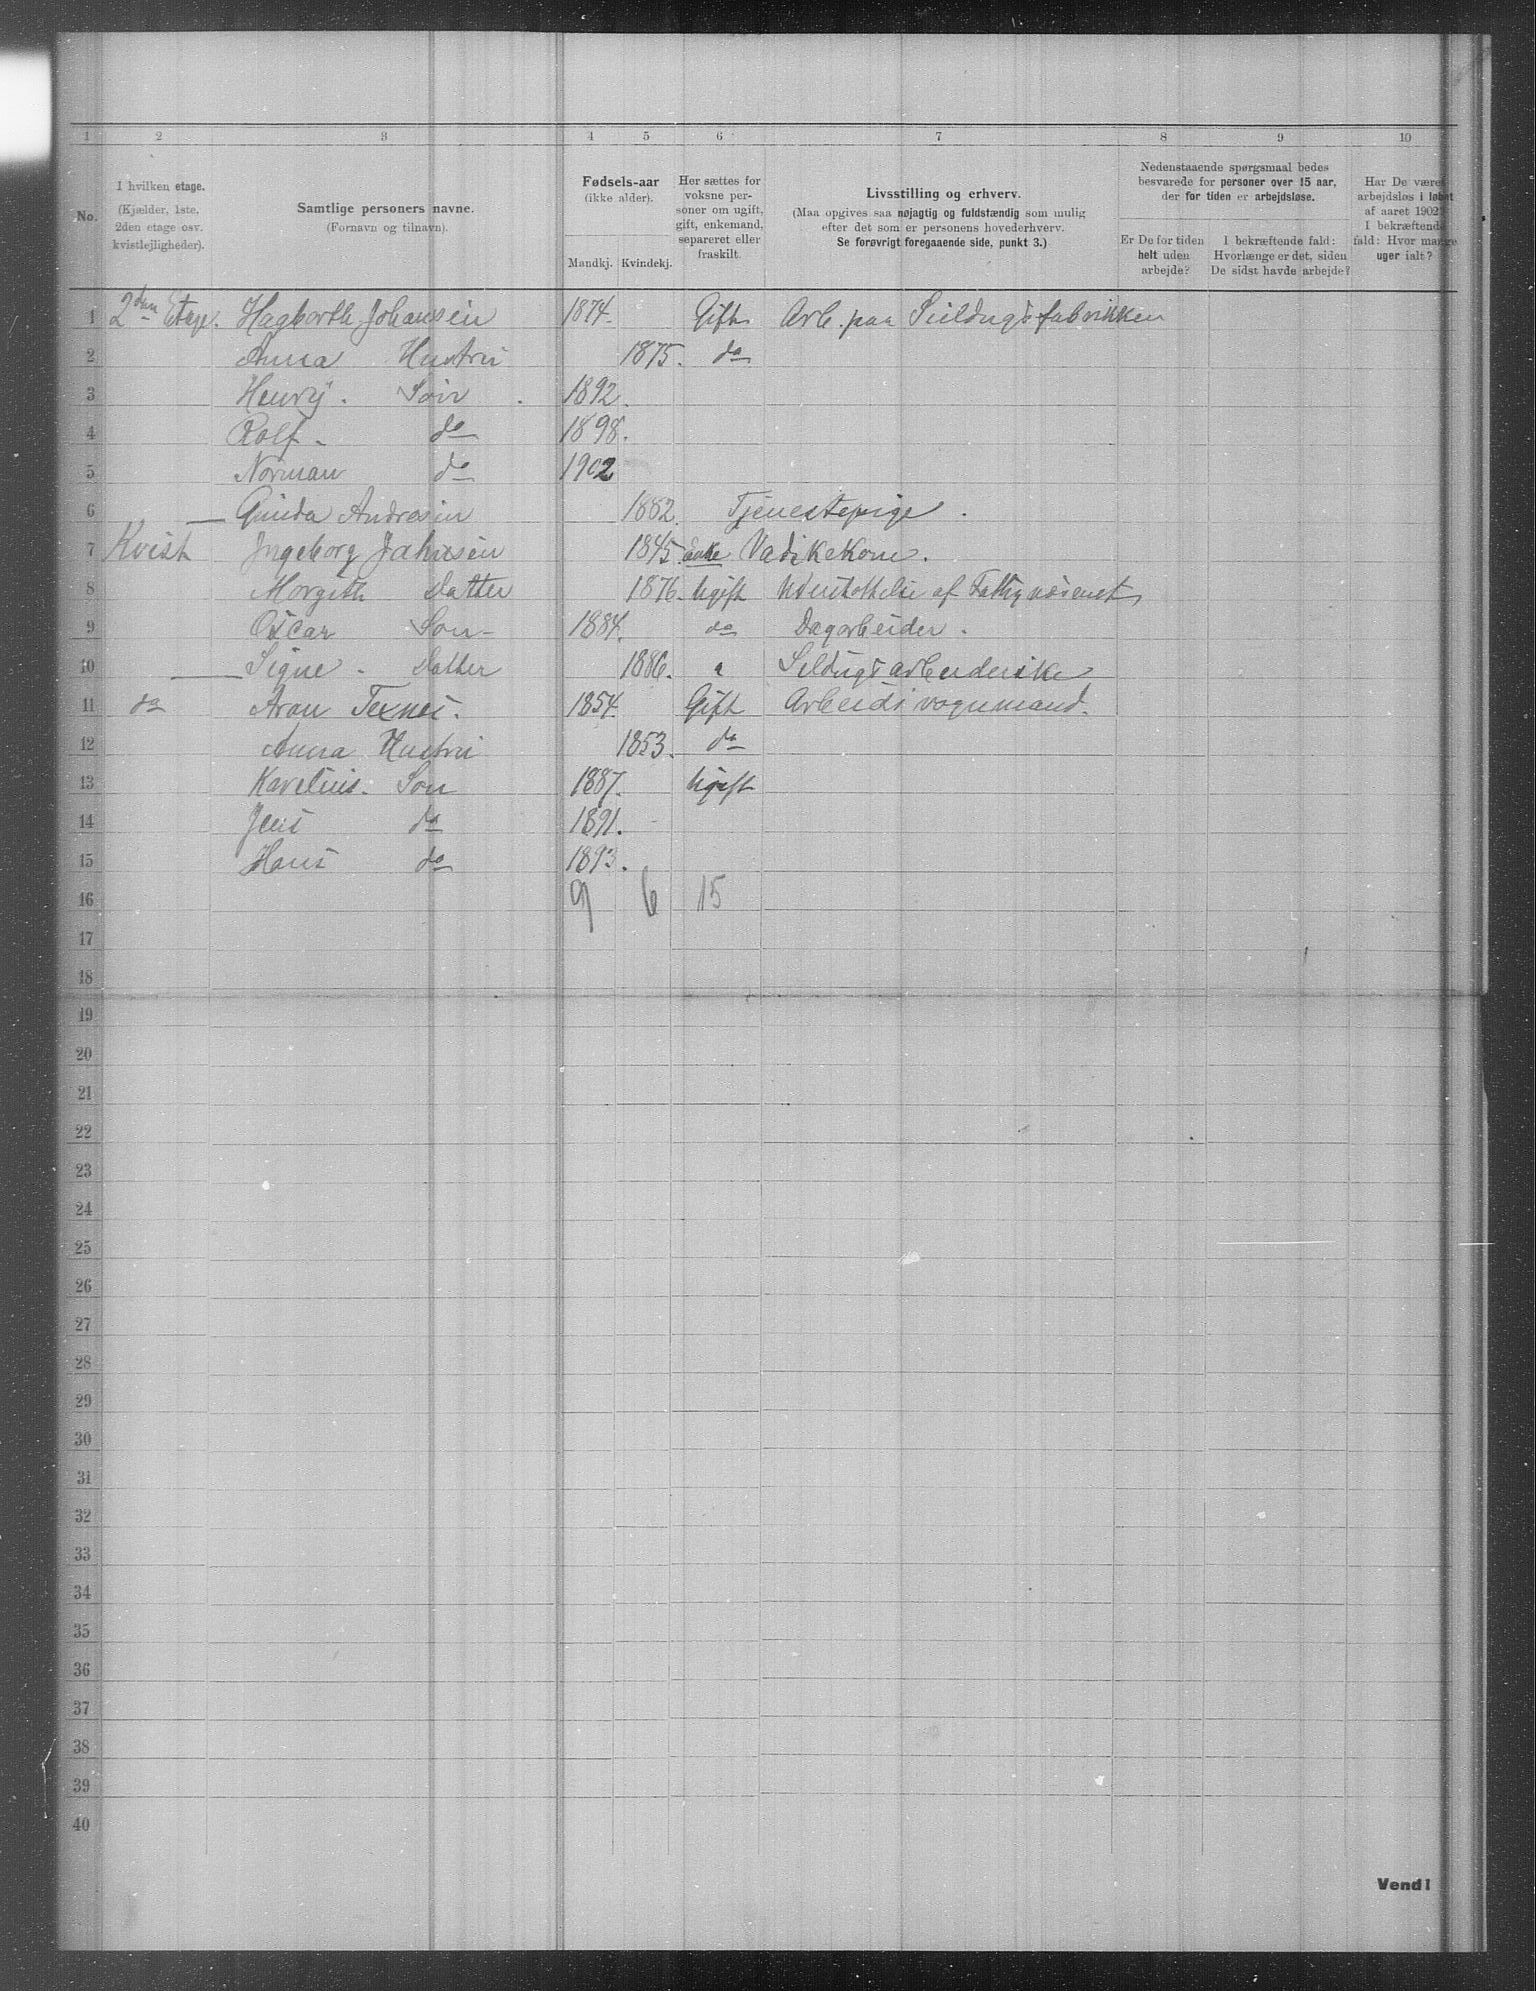 1 2 3 4 5 6 7 8 9 10
No.
I hvilken etage.
(Kjælder, 1ste, 2den etage osv. kvistlejligheder).
Samtlige personers navne.
(Fornavn og tilnavn).
Fødsels-aar
(ikke alder).
Mandkj. Kvindekj.
Her sættes for voksne personer om ugift, gift, enkemand, separeret eller fraskilt.
Livsstilling og erhverv.
(Maa opgives saa nøjagtig og fuldstændig som mulig efter det som er personens hovederhverv.
Se forøvrigt foregaaende side, punkt 3.)
Nedenstaaende spørgsmaal bedes besvarede for personer over 15 aar, der for tiden er arbejdsløse.
Er De for tiden helt uden arbejde?
I bekræftende fald: Hvorlænge er det, siden De sidst havde arbejde?
Har De været arbejdsløs i løbet af aaret 1902?
I bekræftende fald: Hvor mange uger ialt?
1 2den Etage. Hagbarth Johansen 1874. Gift Arb. paa Seildugsfabrikken
2 Anna Hustru 1875. do
3 Henry. Søn 1892.
4 Rolf - do 1898.
5 Norman do 1902
6 Andresen 1882. Tjenestepige.
7 Kvist Ingeborg Johnsen 1845. Enke Vadskekone.
8 Margith Datter 1876. Ugift af Fattigvæsenet
9 Oscar Søn - 1884. do Dagarbeider.
10 Signe - Datter 1886. Seildugsarbeiderske
11 do Aron 1854. Gift Arbeids vognmand.
12 Anna Hustru 1853. do
13 Karelius. Søn 1887. Ugift
14 Jens do 1891.
15 Hans do 1893.
16 9 6 15
17
18
19
20
21
22
23
24
25
26
27
28
29
30
31
32
33
34
35
36
37
38
39
40
Vend!